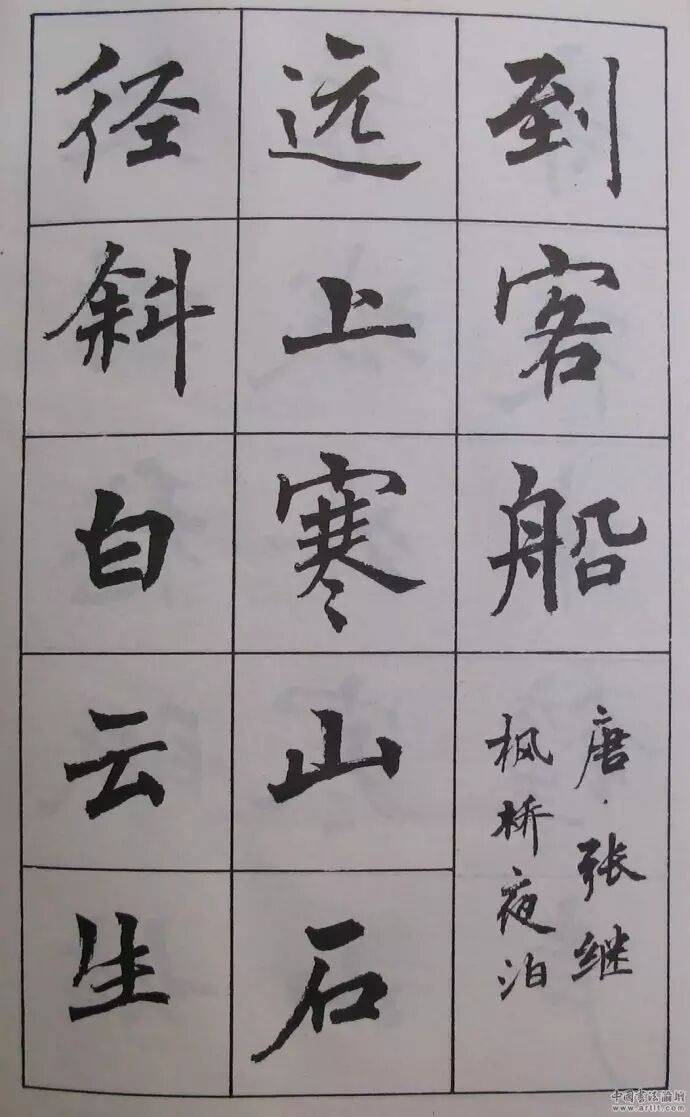 到客船
唐·张继
枫桥夜泊
远上寒山石
径斜白云生
中国书法论坛
www.artlt.com